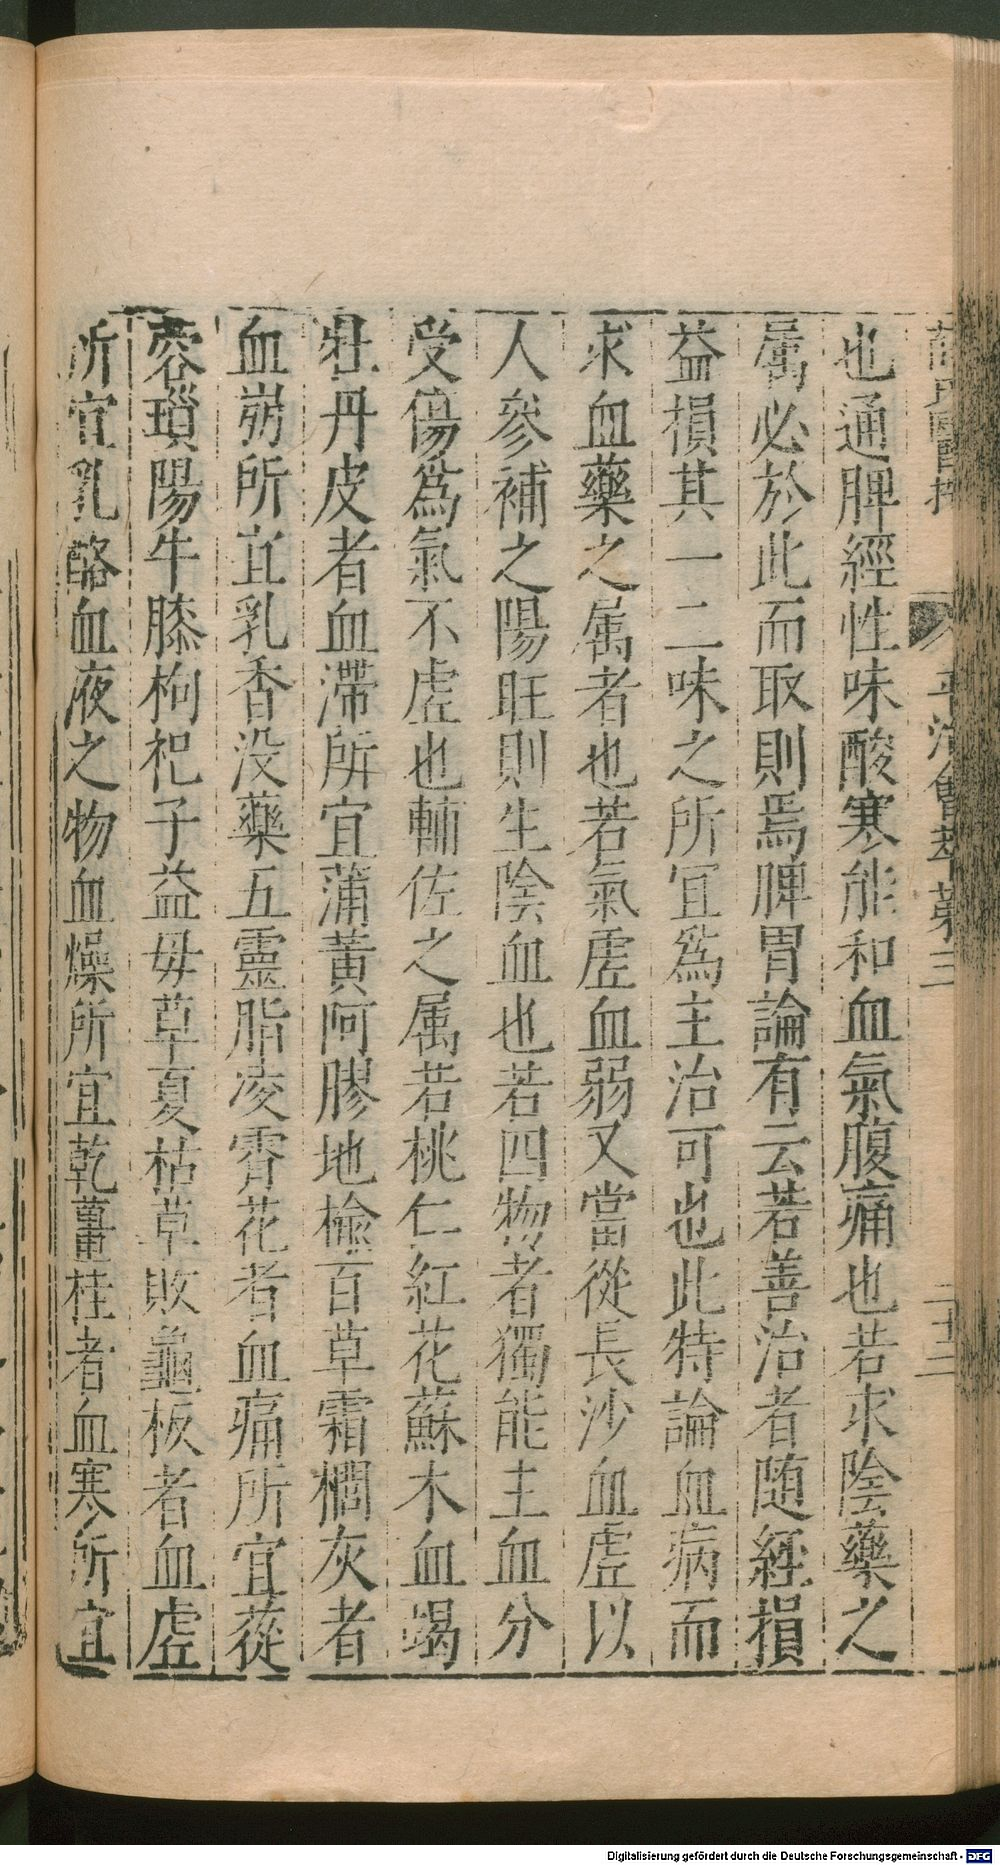 平治會萃卷三
二十三
也通脾經性味酸寒能和血氣腹痛也若求陰藥之
属必於此而取則焉脾胃論有云若善治者随經損
益損其一二味之所宜為主治可也此特論血病而
求血藥之属者也若氣虛血弱又當從長沙血虛以
人參補之陽旺則生陰血也若四物者獨能主血分
受傷為氣不虛也輔佐之属若桃仁紅花蘇木血竭
牡丹皮者血滯所宜蒲黃阿膠地榆百草霜棡灰者
血崩所宜乳香没藥五靈脂凌霄花者血痛所宜蓯
蓉瑣陽牛膝枸杞子益母草夏枯草敗龜板者血虛
所宜乳酪血液之物血燥所宜乾薑桂者血寒所宜
Digitalisierung gefördert durch die Deutsche Forschungsgemeinschaft - DFG